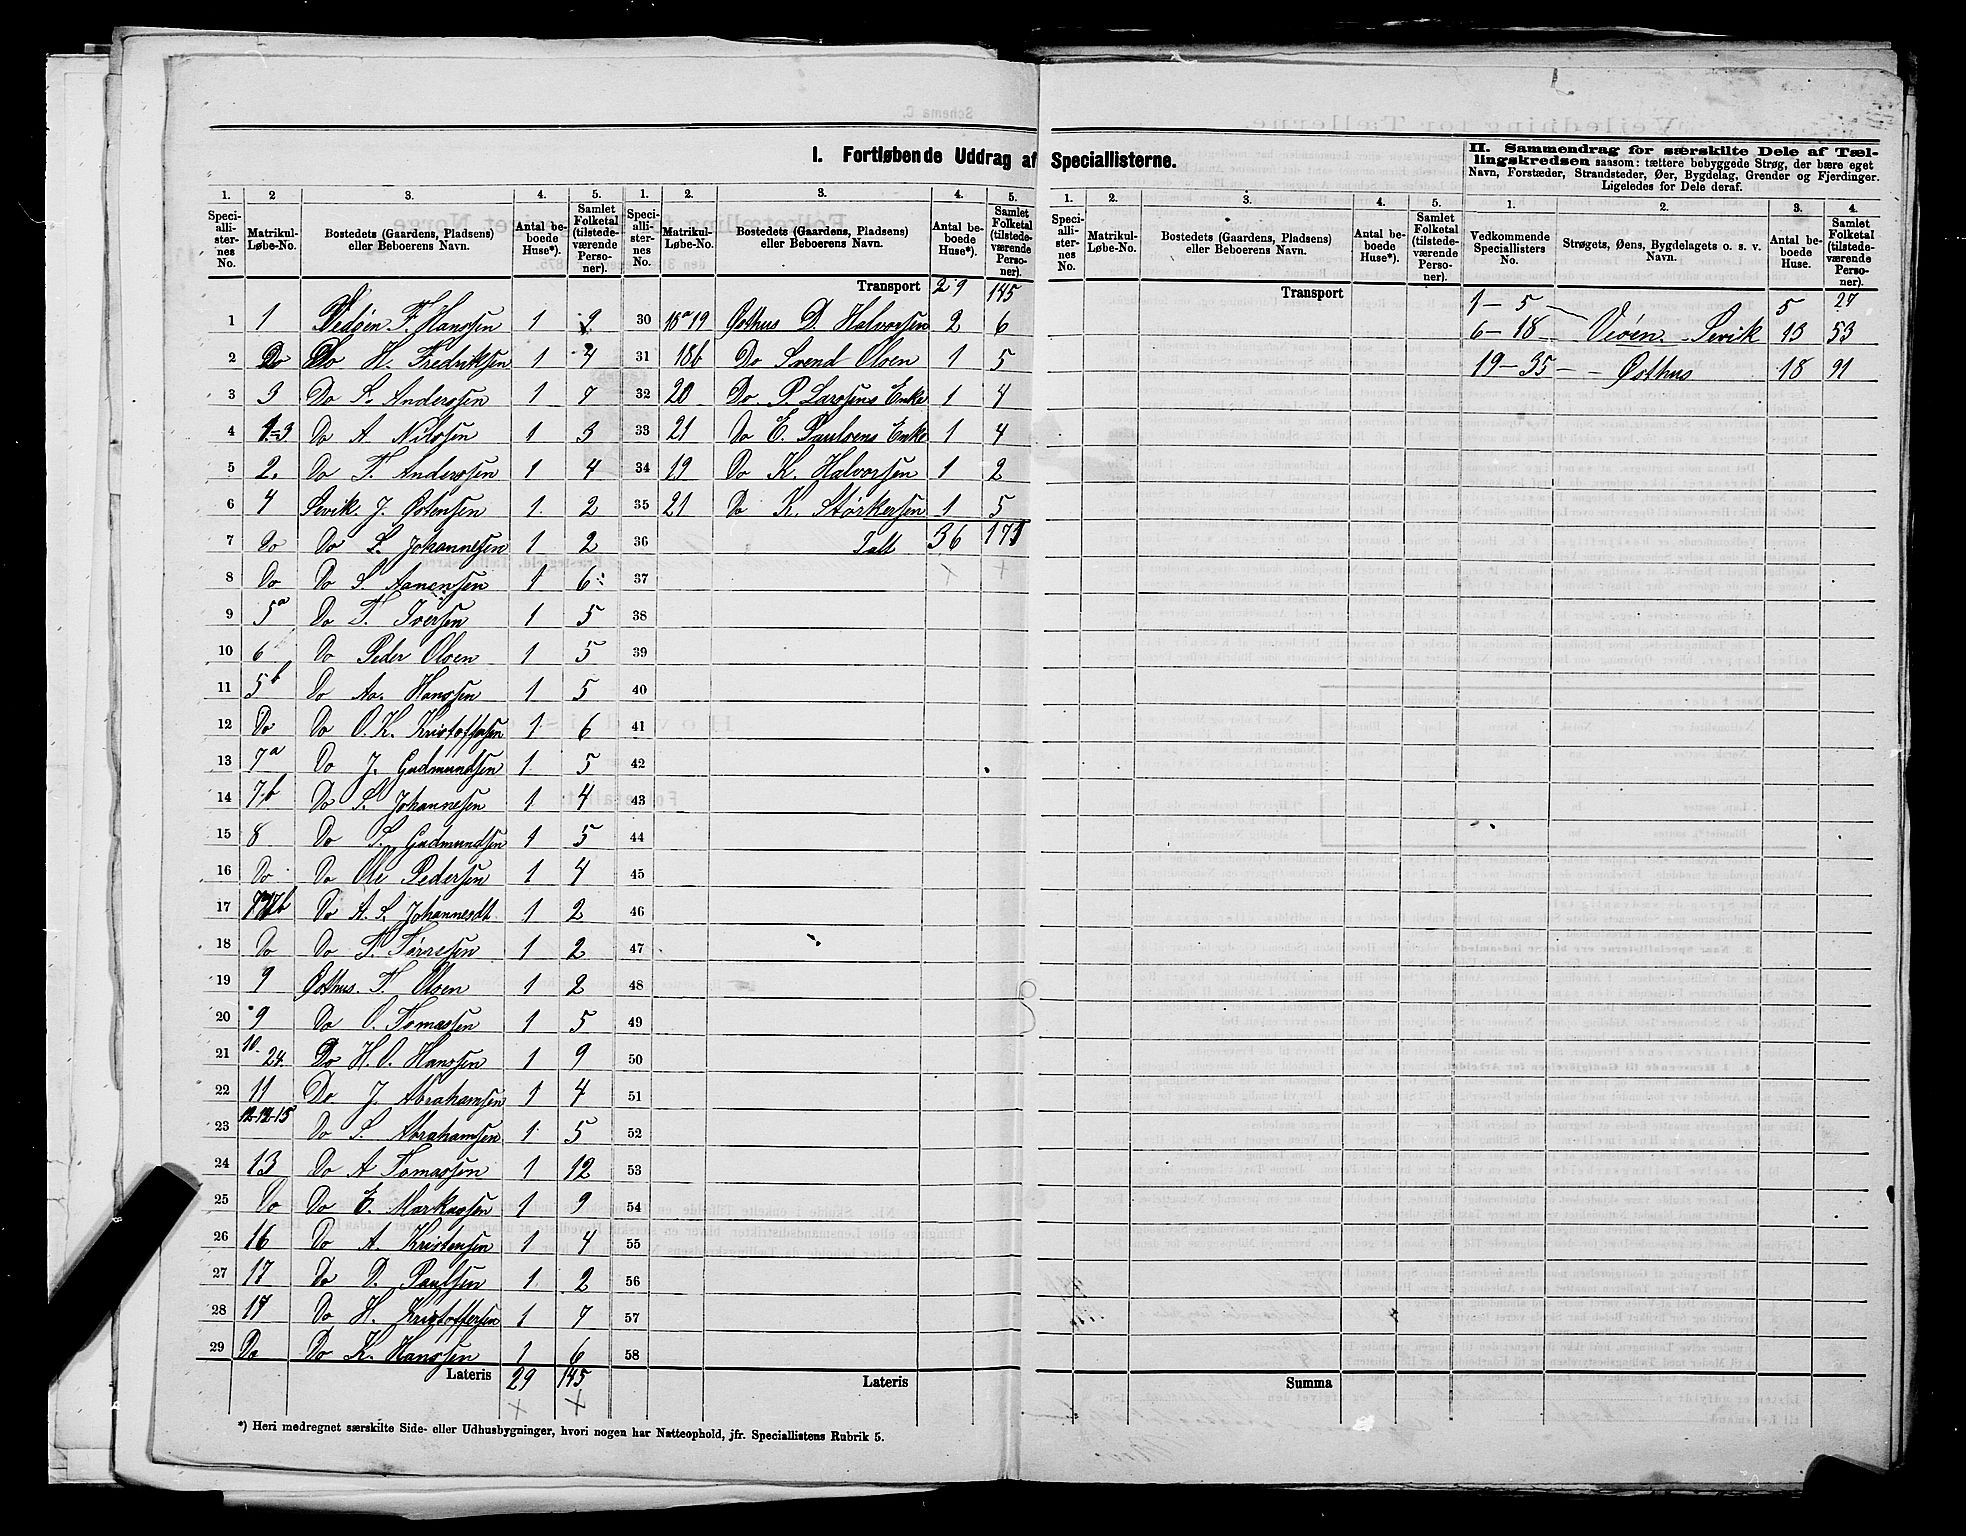 I. Fortløbende Uddrag af Speciallisterne.
II. Sammendrag for særskilte Dele af Tællingskredsen saasom: tættere bebyggede Strøg, der bære eget Navn, Forstæder, Strandsteder, Øer, Bygdelag, Grender og Fjerdinger. Ligeledes for Dele deraf.
1. 2 3. 4. 5. 1. 2. 3. 4. 5.
Speciallisternes No. Matrikul-Løbe-No. Bostedets (Gaardens, Pladsens) eller Beboerens Navn. Antal beboede Huse*). Samlet Folketal (tilstedeværende Personer).
Speciallisternes No. Matrikul-Løbe-No. Bostedets (Gaardens, Pladsens) eller Beboerens Navn. Antal beboede Huse*). Samlet Folketal (tilstedeværende Personer).
1 1 F. Hanssen 1 9
2 Do Do H. Fredriksen 1 4
3 3 Do S. Anderssen 1 7
4 1-3 Do A. Nilssen 1 3
5 2. Do T. Anderssen 1 4
6 4 Sevik J. Ostensen 1 2
7 Do Do S. Johannesen 1 2
8 Do Do S Aanensen 1 6
9 5a Do T. Iversen 1 5
10 6 Do Peder Olsen 1 5
11 5b Do Aa. Hanssen 1 5
12 Do Do O. K. Kristoffersen 1 6
13 7a Do J. Gudmundsen 1 5
14 7b Do S. Johannesen 1 4
15 8 Do S. Gudmundsen 1 5
16 Do Do Ole Pedersen 1 4
17 Do A. S. Johannesdt 1 2
18 Do Do T. Tørresen 1 2
19 9 Østhus T. Olsen 1 2
20 9 Do O. Tomassen 1 5
21 10. 24. Do H. O. Hanssen 1 9
22 11 Do J. Abrahamsen 1 4
23 12-12-15 Do S. Abrahamsen 1 5
24 13 Do A Tomassen 1 12
25 Do Do E. Markussen 1 9
26 16 Do A. Kristensen 1 4
27 17 Do D. Paulsen 1 2
28 17 Do H. Kristoffersen 1 7
29 Do Do K. Hanssen 1 6
Lateris 29 145
Transport 29 145
30 18a 19 Østhus D. Halvorsen 2 6
31 18b Do Svend Olsen 1 5
32 20 Do. P. Larssens Enke 1 4
33 21 Do E. Paulsens Enke 1 4
34 19 Do K. Halvorsen 1 2
35 21 Do K. Størkersen 1 5
36 Talt 36 171
37
38
39
40
41
42
43
44
45
46
47
48
49
50
51
52
53
54
55
56
57
58
Lateris
*) Heri medregnet særskilte Side- eller Udhusbygninger, hvori nogen har Natteophold, jfr. Speciallistens Rubrik 5.
1. 2. 3. 4. 5. 1. 2. 3. 4.
Speciallisternes No. Matrikul-Løbe-No. Bostedets (Gaardens, Pladsens) eller Beboerens Navn. Antal beboede Huse*). Samlet Folketal (tilstedeværende Personer).
Transport
Summa
Vedkommende Speciallisters No. Strøgets, Øens, Bygdelagets o. s. v. Navn. Antal beboede Huse. Samlet Folketal (tilstedeværende Personer).
1-5 5 27
6-18 Sevik 13 53
19-35 Østhus 18 91